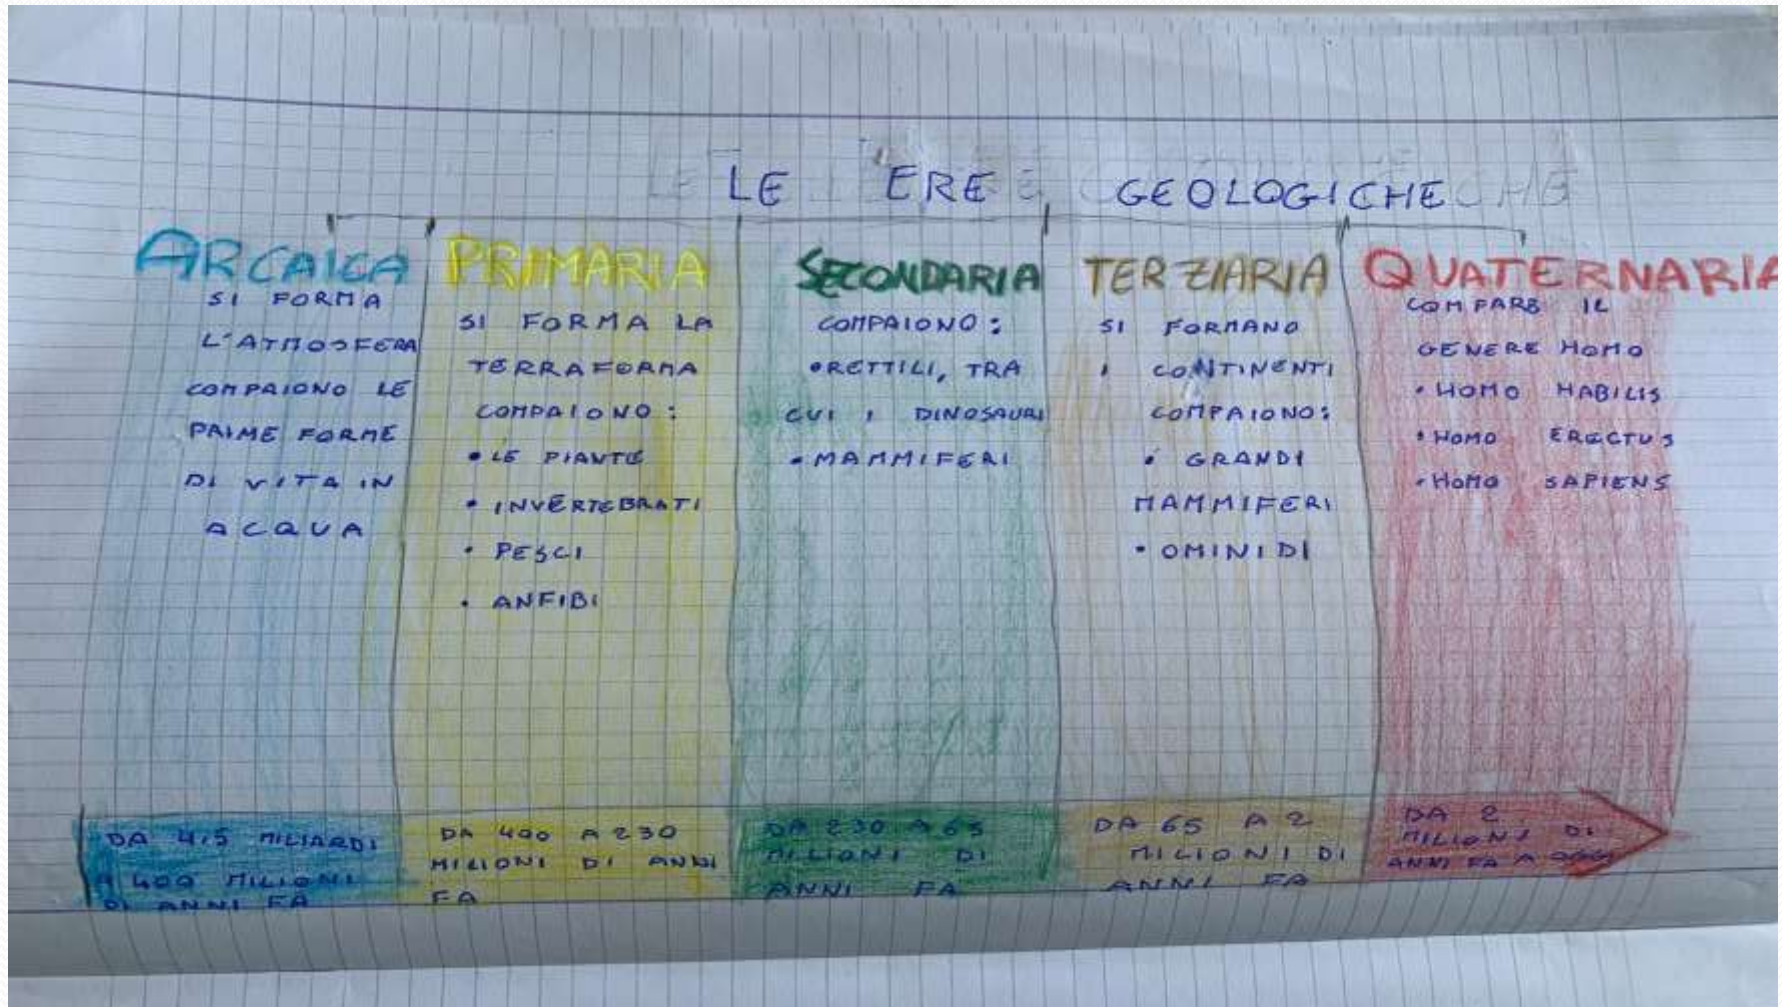 LE ERE GEOLOGICHE
ARCAICA
SI FORMA
L'ATMOSFERA
COMPAIONO LE
PRIME FORME
DI VITA IN
ACQUA
DA 4,5 MILIARDI
A 400 MILIONI
DI ANNI FA
PRIMARIA
SI FORMA LA
TERRAFORMA
COMPAIONO:
• LE PIANTE
• INVERTEBRATI
• PESCI
• ANFIBI
DA 400 A 230
MILIONI DI ANNI
FA
SECONDARIA
COMPAIONO:
• RETTILI, TRA
CUI I DINOSAURI
• MAMMIFERI
DA 230 A 65
MILIONI DI
ANNI FA
TERZIARIA
SI FORMANO
I CONTINENTI
COMPAIONO:
• GRANDI
MAMMIFERI
• OMINIDI
DA 65 A 2
MILIONI DI
ANNI FA
QUATERNARIA
COMPARE IL
GENERE HOMO
• HOMO HABILIS
• HOMO ERECTUS
• HOMO SAPIENS
DA 2
MILIONI DI
ANNI FA A OGGI